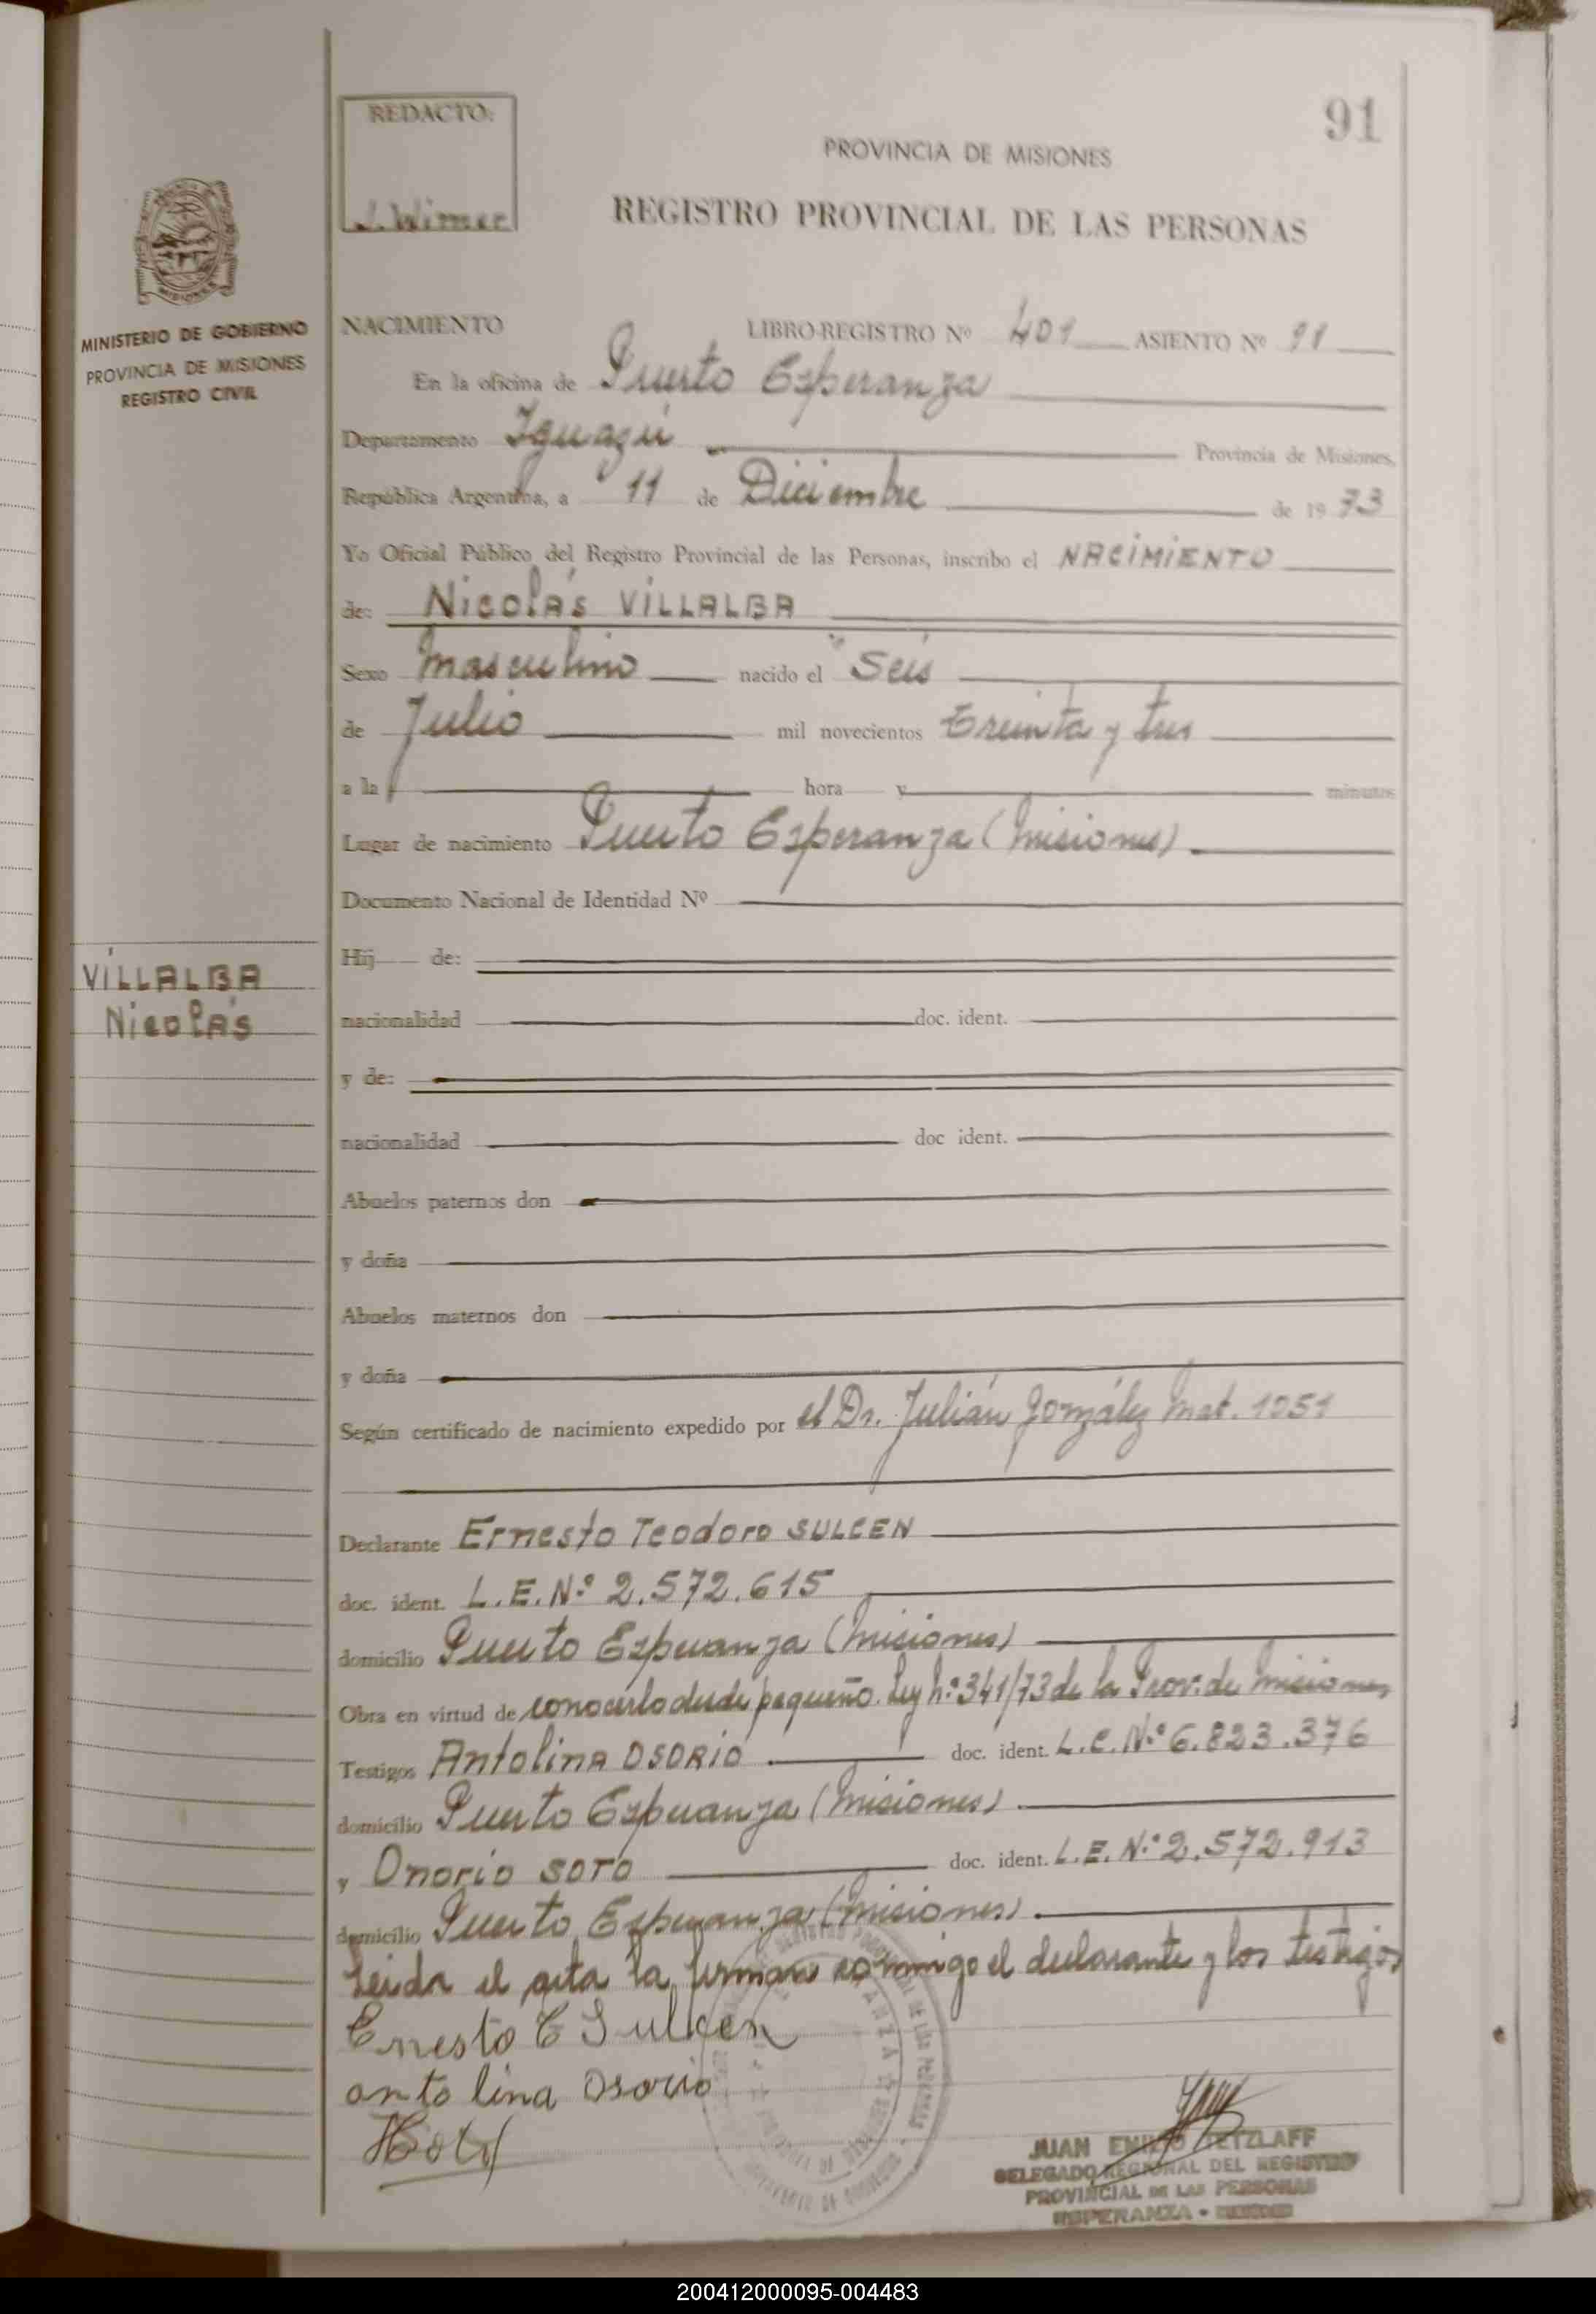 REDACTO:
J. Wimer
91
PROVINCIA DE MISIONES
REGISTRO PROVINCIAL DE LAS PERSONAS
MISIONES
MINISTERIO DE GOBIERNO
PROVINCIA DE MISIONES
REGISTRO CIVIL
NACIMIENTO LIBRO-REGISTRO Nº 401 ASIENTO Nº 91
En la oficina de Puerto Esperanza
Departamento Iguazú Provincia de Misiones,
República Argentina, a 11 de Diciembre de 1973
Yo Oficial Público del Registro Provincial de las Personas, inscribo el NACIMIENTO
de: Nicolás VILLALBA
Sexo Masculino nacido el Seis
de Julio mil novecientos Treinta y tres
a la hora y minutos
Lugar de nacimiento Puerto Esperanza (Misiones)
Documento Nacional de Identidad Nº
VILLALBA
Nicolás
Hij de:
nacionalidad doc. ident.
y de:
nacionalidad doc ident.
Abuelos paternos don
y doña
Abuelos maternos don
y doña
Según certificado de nacimiento expedido por el Dr. Julián González Mat. 1051
Declarante Ernesto Teodoro SULCEN
doc. ident. L.E.Nº 2.572.615
domicilio Puerto Esperanza (Misiones)
Obra en virtud de conocerlo desde pequeño. Ley Nº 341/73 de la Prov. de Misiones
Testigos Antolina OSORIO doc. ident. L.C.Nº 6.823.376
domicilio Puerto Esperanza (Misiones)
y Onorio SOTO doc. ident. L.E.Nº 2.572.913
domicilio Puerto Esperanza (Misiones).
Leida el acta la firman conmigo el declarante y los testigos
Ernesto T Sulcen
antolina Osorio
JUAN EMILIO TETZLAFF
DELEGADO REGIONAL DEL REGISTRO
PROVINCIAL DE LAS PERSONAS
ESPERANZA - MISIONES
200412000095-004483